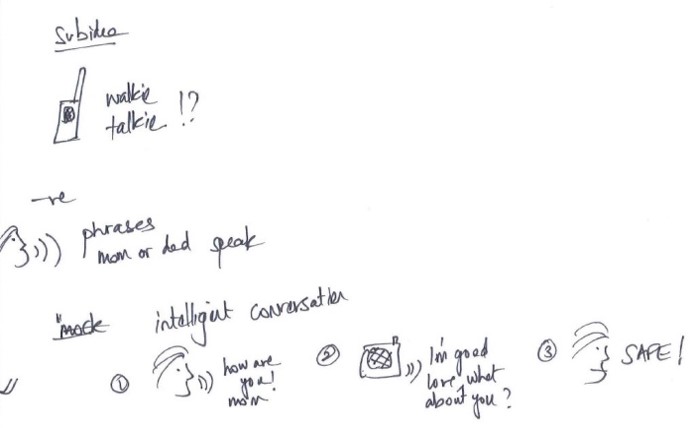 Subidea
walkie !?
talkie
-re
phrases
mom or dad speak
"mock intelligent conversation
① how are
you!
mom
② I'm good
love, what
about you?
③ SAFE!